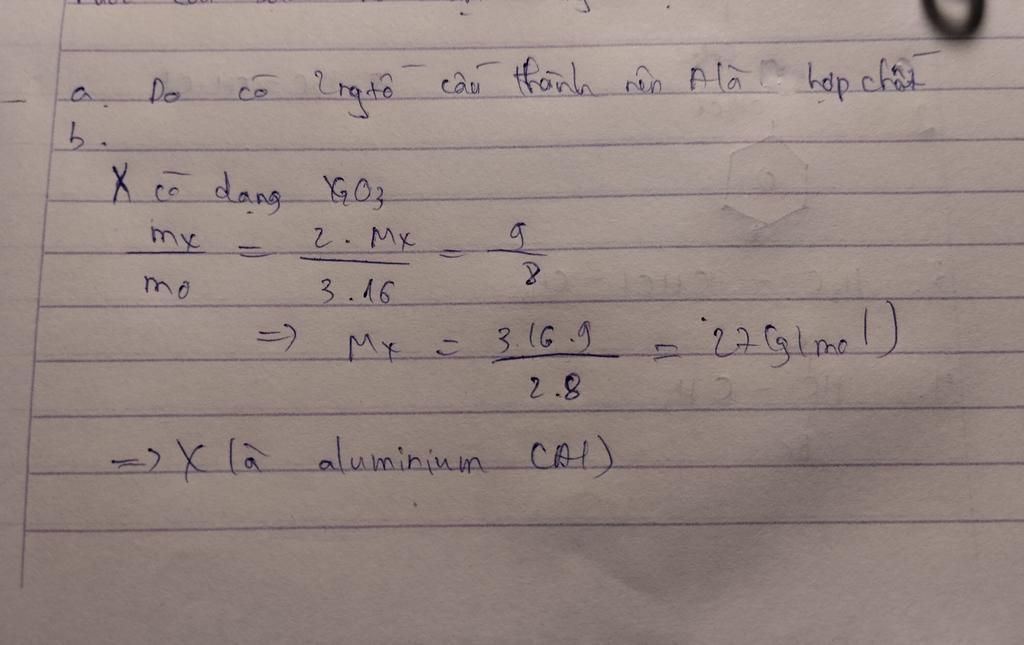 a. Do có 2 ngtố cấu thành nên A là hợp chất
b.
X có dạng X2O3
mx / mo = 2 . Mx / 3 . 16 = 9 / 8
=> Mx = 3.16.9 / 2.8 = 27 (g/mol)
=> X là aluminium (Al)